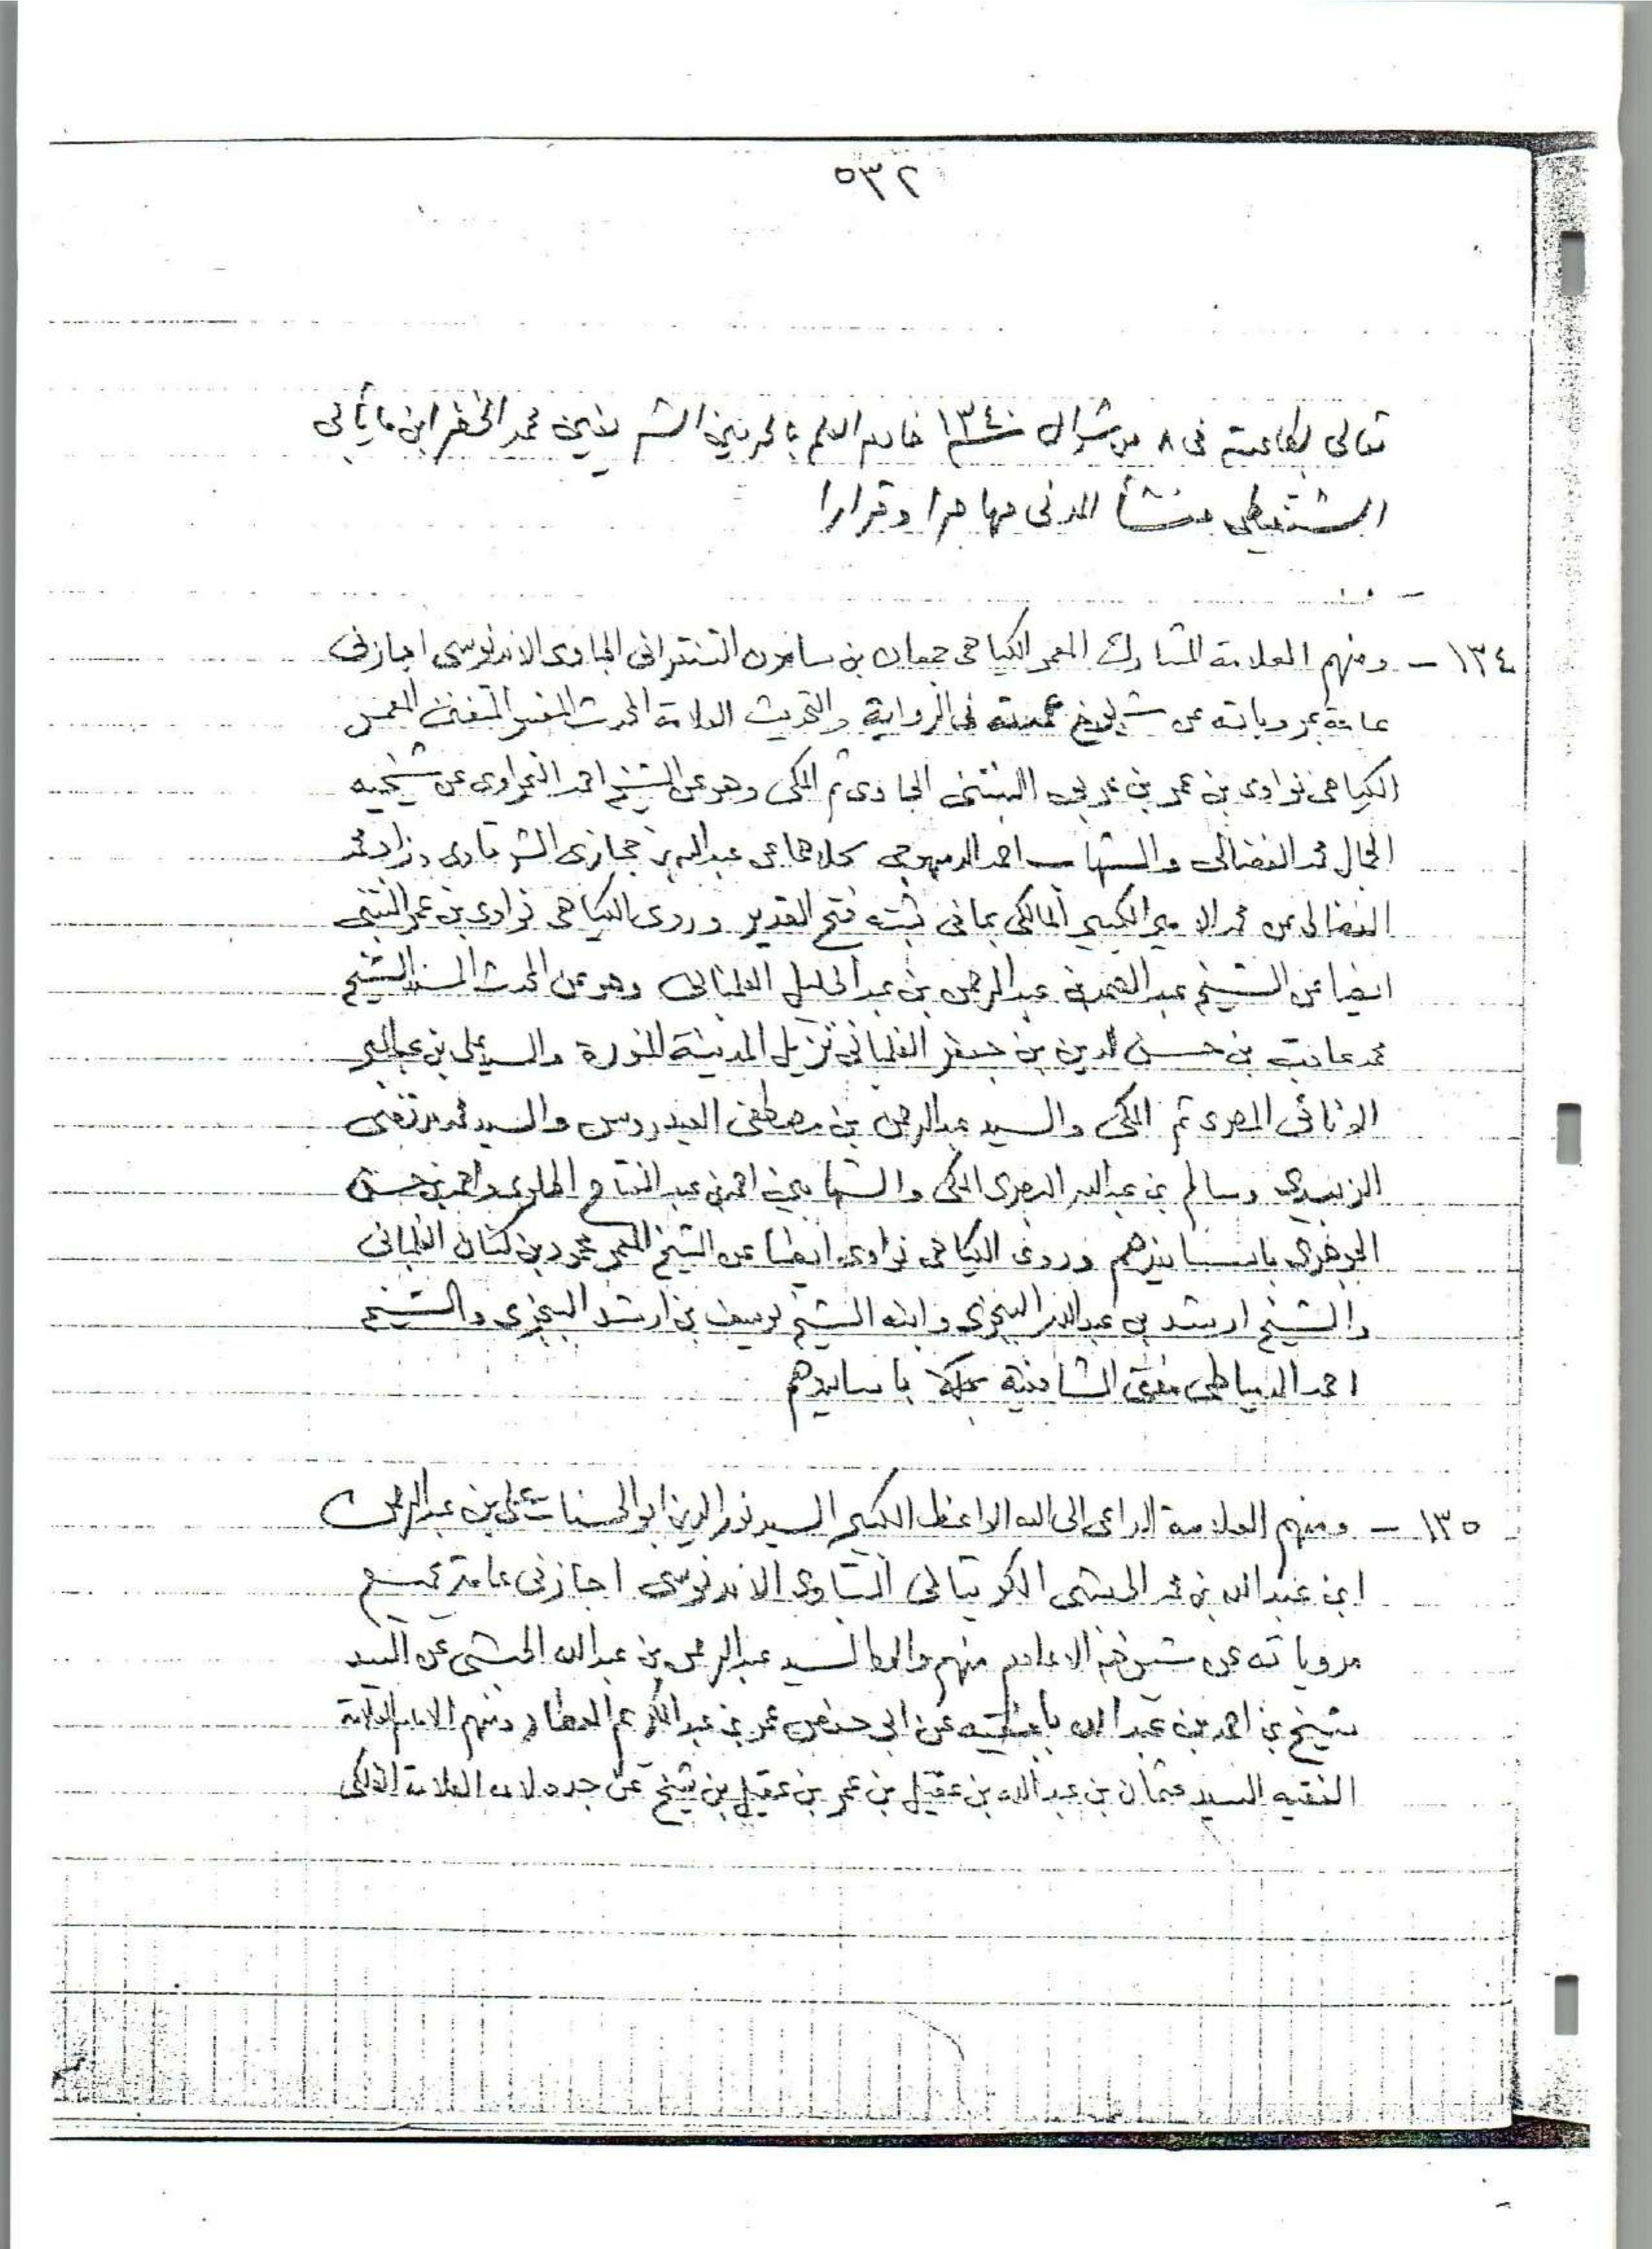 ٥٣٢
تعالى لطاعته فى ٨ من شوال سنة ١٣٤٠ خادم العلم بالحرمين الشريفين محمد الخضر ابن مايأبى
الشنقيطى منشأ المدنى مهاجرا وقرارا
١٣٤ - ومنهم العلامة المشارك المعمر الكياهى جمعان بن سامون التنقرانى الجاوى الاندنوسى اجازنى
عامة بمروياته عن شيوخ عمدته فى الرواية والتحديث العلامة المحدث المفسر المتفنن المعمر
الكياهى نواوى بن عمر بن عربى البنتنى الجاوى ثم المكى وهو عن الشيخ احمد النحراوى عن شيخيه
الجمال محمد الفضالى والشهاب احمد الدمهوجى كلاهما عن عبدالله بن حجازى الشرقاوى وزاد محمد
الفضالى عن محمد الامير الكبير المالكى بما فى ثبته فتح القدير وروى الكياهى نواوى بن عمر البنتنى
ايضا عن الشيخ عبد الصمد بن عبدالرحمن بن عبدالجليل الفلمبانى وهو عن المحدث المسند الشيخ
محمد عاقب بن حسن الدين بن جعفر الفلمبانى نزيل المدينة المنورة والسيد على بن عبدالبر
الونائى المصرى ثم المكى والسيد عبدالرحمن بن مصطفى العيدروس والسيد محمد مرتضى
الزبيدى وسالم بن عبدالله البصرى المكى والشهابين احمد بن عبدالفتاح الملوى واحمد بن حسن
الجوهرى باسانيدهم وروى الكياهى نواوى ايضا عن الشيخ المعمر محمود بن كنان الفلمبانى
والشيخ ارشد بن عبدالله البنجرى وابنه الشيخ يوسف بن ارشد البنجرى والشيخ
احمد الدمياطى مفتى الشافعية بمكة باسانيدهم
١٣٥ - ومنهم العلامة الداعى الى الله الواعظ الكبير السيد نور الدين ابو الحسنات على بن عبدالرحمن
ابن عبدالله بن محمد الحبشى الكويتالى البتاوى الاندنوسى اجازنى عامة بجميع
مروياته عن شيوخه الاعلام منهم والده السيد عبدالرحمن بن عبدالله الحبشى عن السيد
شيخ بن احمد بن عبدالله بافقيه عن ابى حفص عمر بن عبدالكريم العطار ومنهم الامام العلامة
الفقيه السيد عثمان بن عبدالله بن عقيل بن عمر بن عقيل بن شيخ عن جده لامه العلامة الفلكى